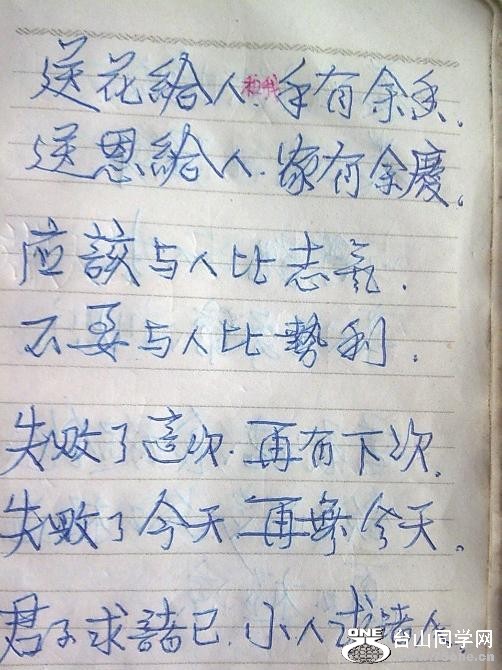 送花給人 手有余香.
送恩給人. 家有余慶.
应該与人比志氣.
不要与人比勢利.
失败了這次. 再有下次.
失败了今天 再無今天.
君子求諸己 小人求諸人
ONE 台山同学网